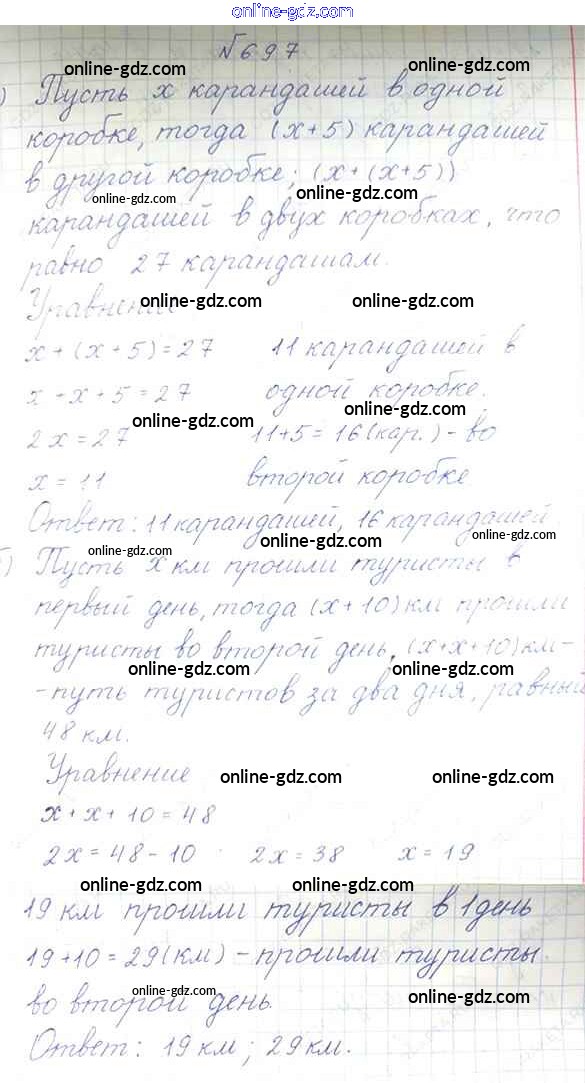 online-gdz.com
№697
online-gdz.com
) Пусть x карандашей в одной
online-gdz.com
коробке, тогда (x+5) карандашей
в другой коробке; (x+(x+5))
online-gdz.com online-gdz.com
карандашей в двух коробках, что
равно 27 карандашам.
online-gdz.com online-gdz.com
Уравнение
x+(x+5)=27 11 карандашей в
x+x+5=27 одной коробке.
online-gdz.com
online-gdz.com
2x=27 11+5=16(кар.)- во
x=11 второй коробке
online-gdz.com
Ответ: 11 карандашей, 16 карандашей
online-gdz.com online-gdz.com
) Пусть x км прошли туристы в
первый день, тогда (x+10) км прошли
туристы во второй день, (x+x+10) км-
online-gdz.com online-gdz.com
-путь туристов за два дня, равный
48 км.
Уравнение
online-gdz.com online-gdz.com
x+x+10=48
2x=48-10 2x=38 x=19
online-gdz.com online-gdz.com
19 км прошли туристы в 1 день
19+10=29(км)-прошли туристы
во второй день.
online-gdz.com online-gdz.com
Ответ: 19 км; 29 км.